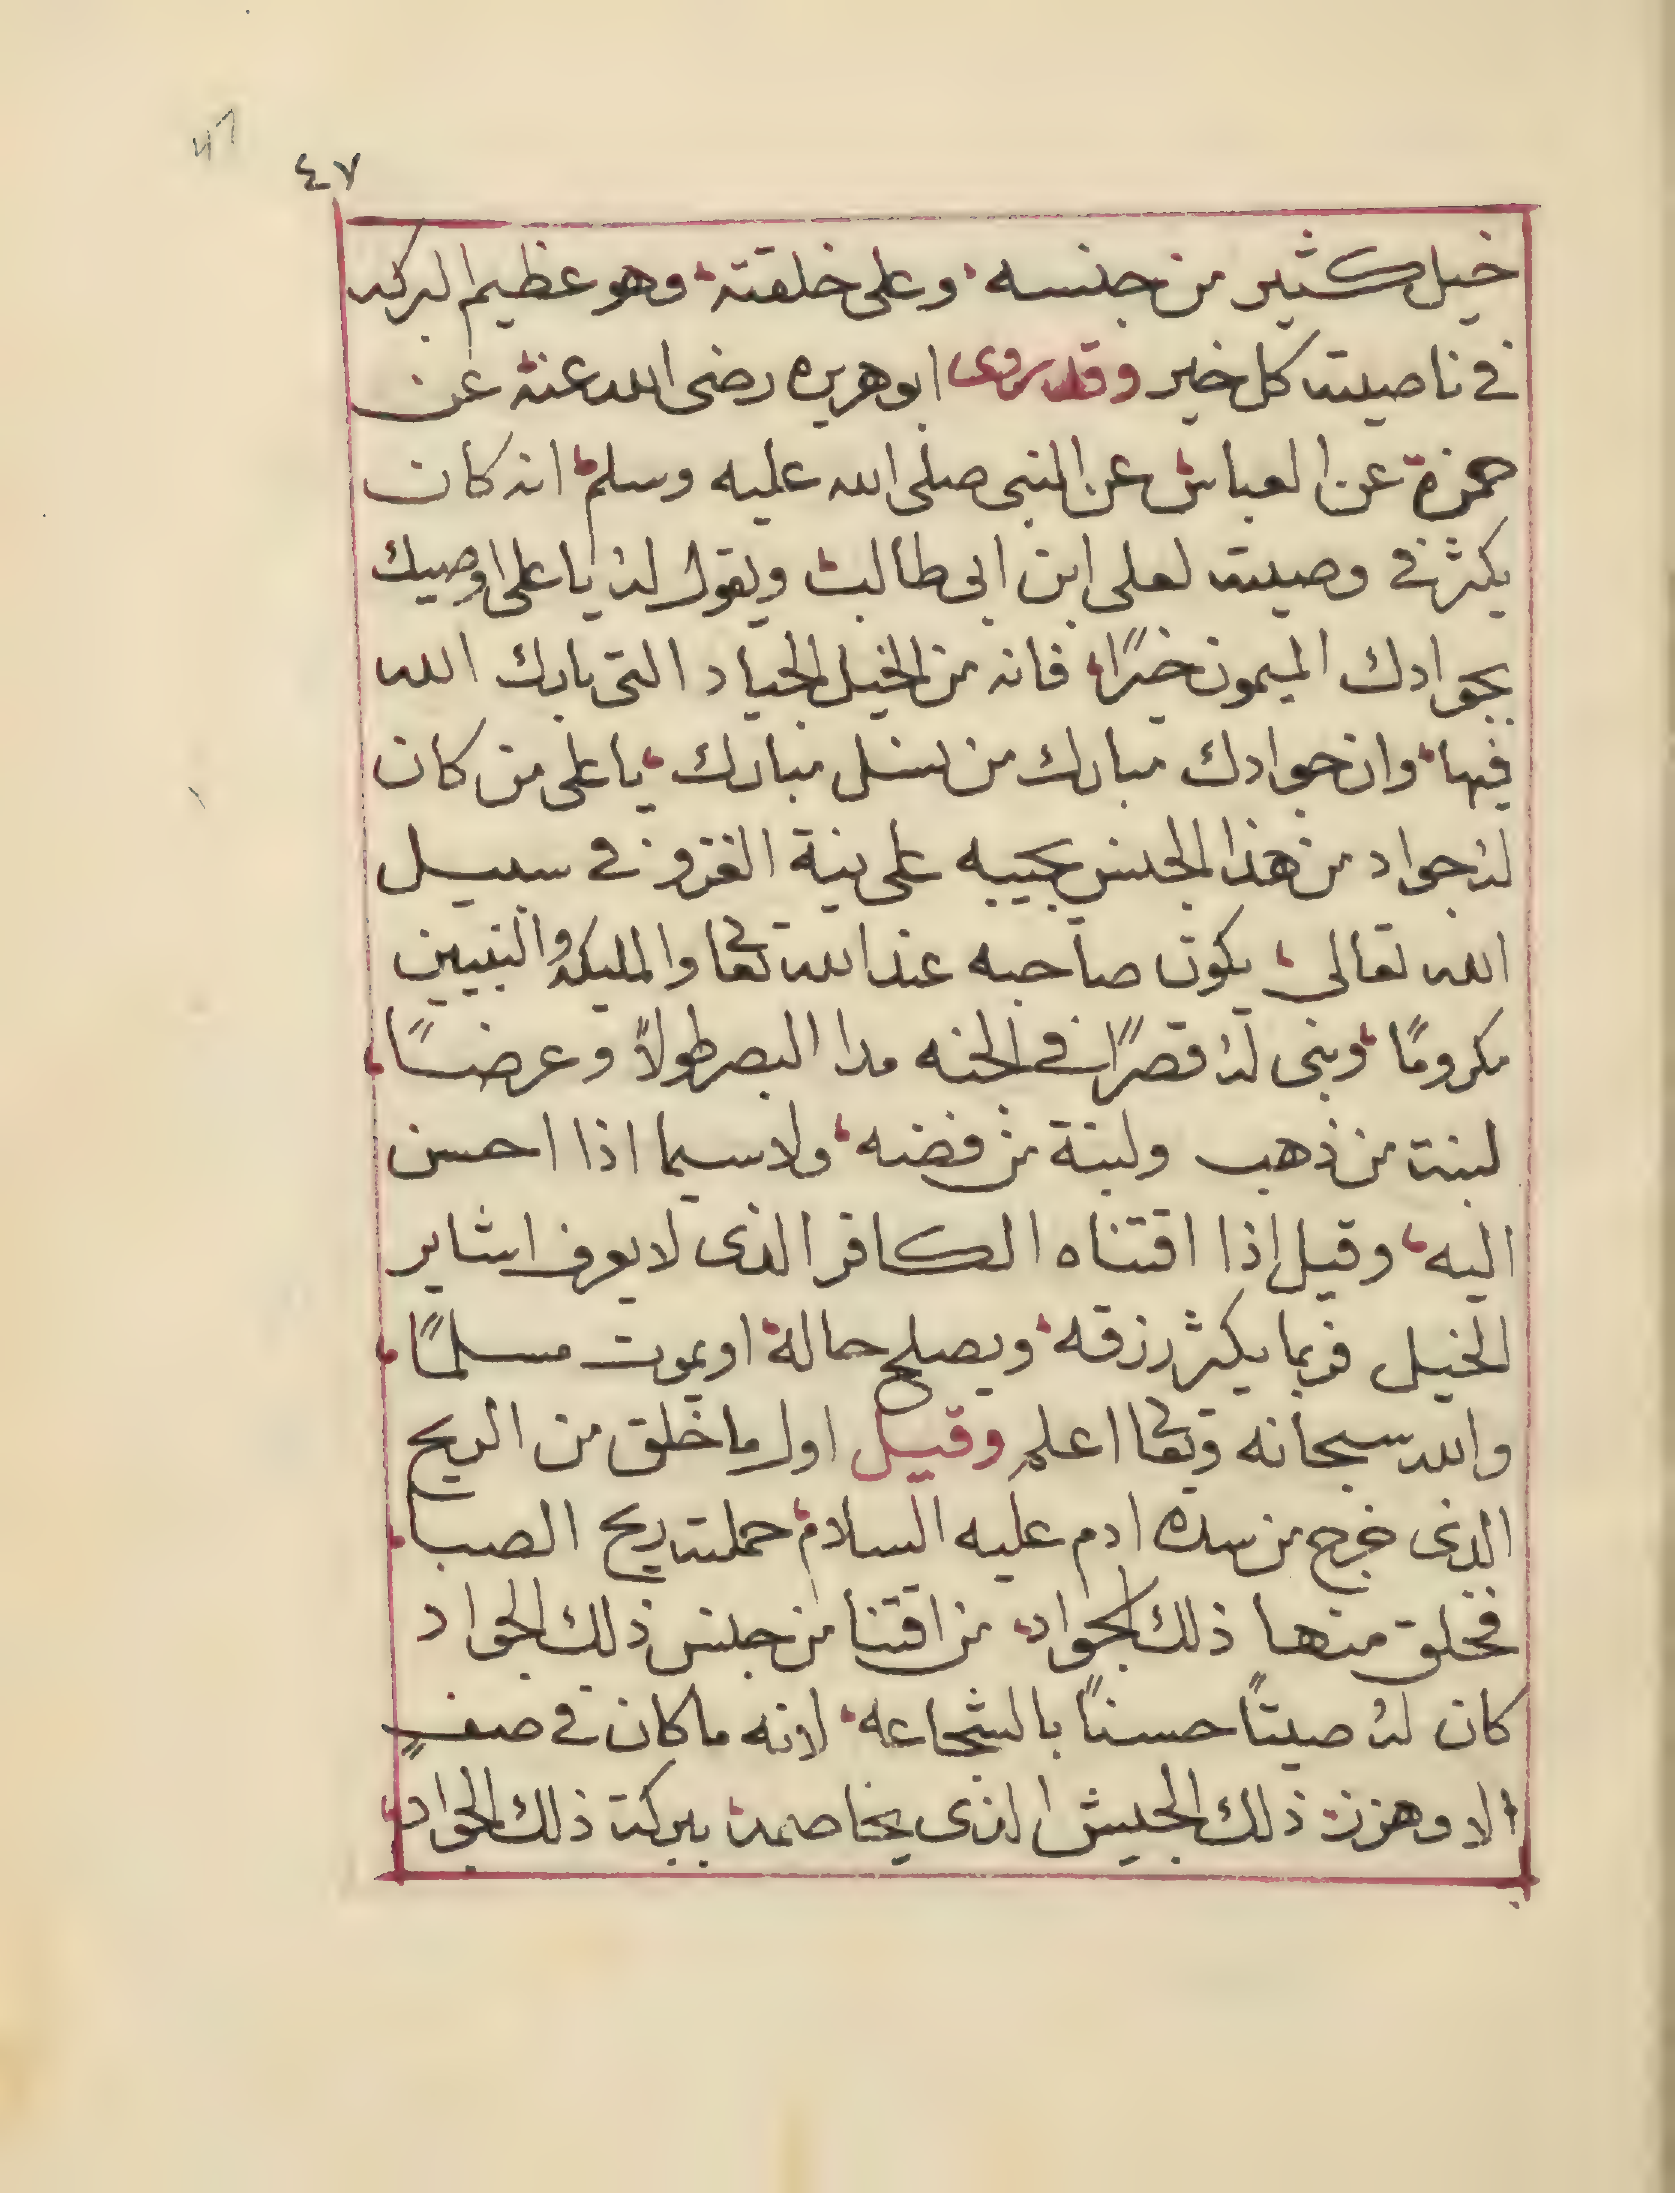 47
٤٧
خيل كثير من جنسه، وعلى خلقته، وهو عظيم البركه
في ناصيته كل خير وقد روى ابو هريره رضى الله عنه عن
حمزة عن العباس عن النبى صلى الله عليه وسلم انه كان
يكثر في وصيته لعلى ابن ابى طالب ويقول له يا على اوصيك
بجوادك الميمون خيرًا، فانه من الخيل الجياد التى بارك الله
فيها، وان جوادك مبارك من نسل مبارك، يا على من كان
له جواد من هذا الجنس يجيبه على نية الغزو في سبيل
الله تعالى، يكون صاحبه عند الله تعا والمليكه والنبيين
مكرومًا، وبنى له قصرًا في الجنه مدا البصر طولاً وعرضًا،
لبنته من ذهب ولبنة من فضه، ولا سيما اذا احسن
اليه، وقيل اذا اقتناه الكافر الذى لا يعرف اشاير
الخيل فربما يكثر رزقه، ويصلح حاله اويموت مسلمًا،
والله سبحانه وتعا اعلم وقيل اول ما خلق من الريح
الذى خرج من سده ادم عليه السلام حملته ريح الصبا،
فخلق منها ذلك الجواد، من اقتنا من جنس ذلك الجواد
كان له صيتًا حسنًا بالشجاعه، لانه ما كان في صفٍ
الا وهزن ذلك الجيش الذى يخاصمه ببركة ذلك الجواد،